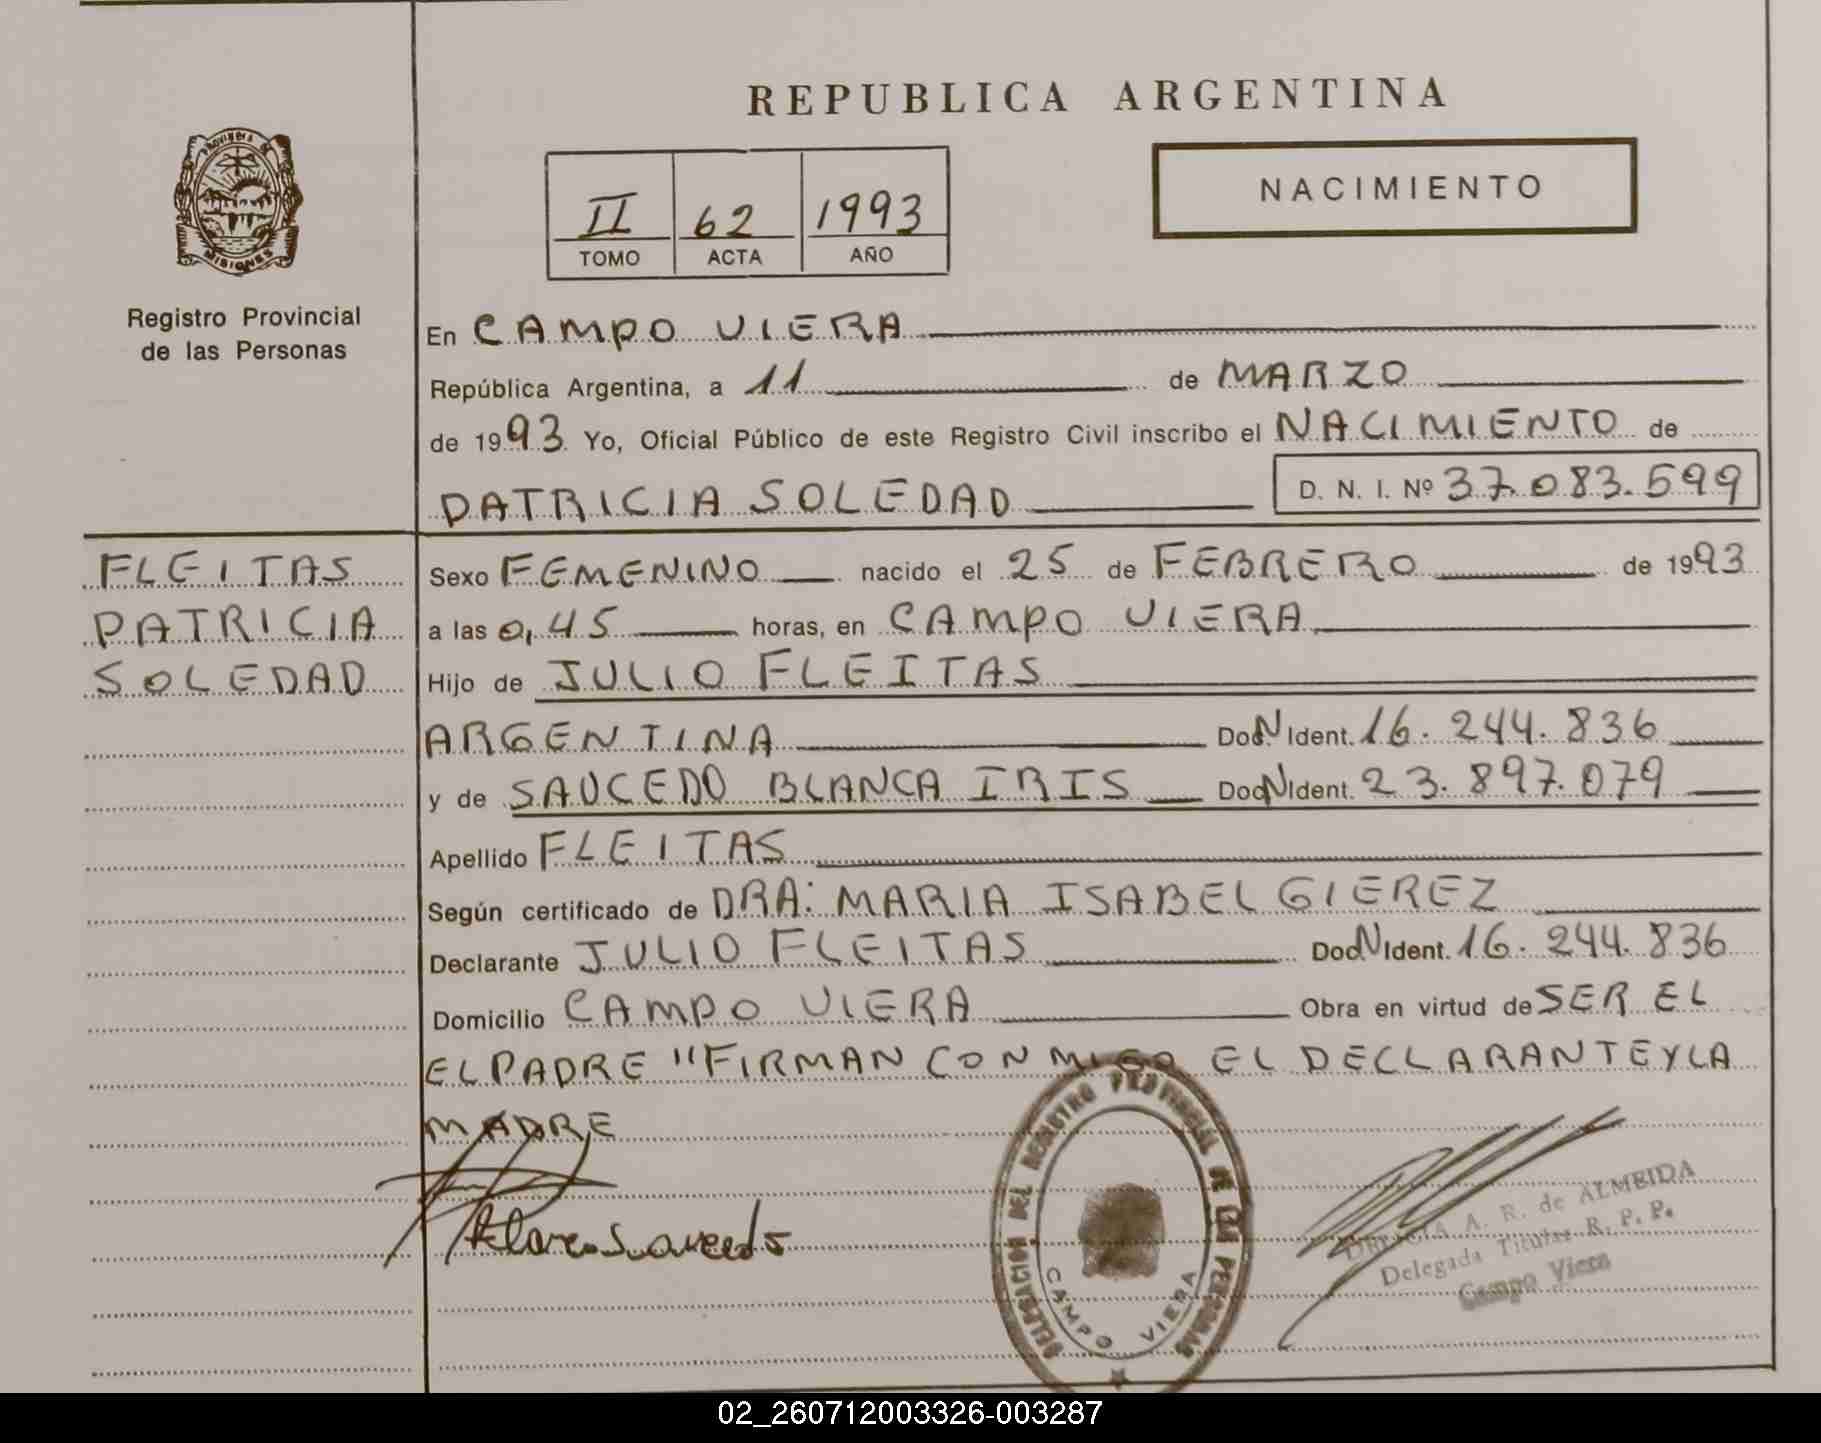 REPUBLICA ARGENTINA
NACIMIENTO
II 62 1993
TOMO ACTA AÑO
PROVINCIA
MISIONES
Registro Provincial
de las Personas
En CAMPO VIERA
República Argentina, a 11 de MARZO
de 1993 Yo, Oficial Público de este Registro Civil inscribo el NACIMIENTO de
PATRICIA SOLEDAD D. N. I. Nº 37.083.599
FLEITAS
PATRICIA
SOLEDAD
Sexo FEMENINO nacido el 25 de FEBRERO de 1993
a las 0,45 horas, en CAMPO VIERA
Hijo de JULIO FLEITAS
ARGENTINA Doc. N Ident. 16.244.836
y de SAUCEDO BLANCA IRIS Doc N Ident. 23.897.079
Apellido FLEITAS
Según certificado de DRA: MARIA ISABEL GIEREZ
Declarante JULIO FLEITAS Doc N Ident. 16.244.836
Domicilio CAMPO VIERA Obra en virtud de SER EL
EL PADRE "FIRMAN CON MIGO EL DECLARANTE Y LA
MADRE
DELEGACION DEL REGISTRO PROVINCIAL DE LAS PERSONAS
CAMPO VIERA
A. R. de ALMEIDA
Delegada Titular R. P. P.
Campo Viera
02_260712003326-003287